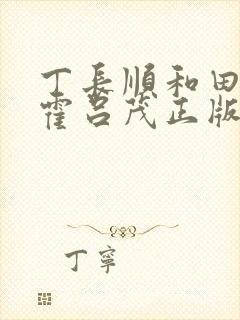 丁長順和田
霍呂茂正版
丁寧